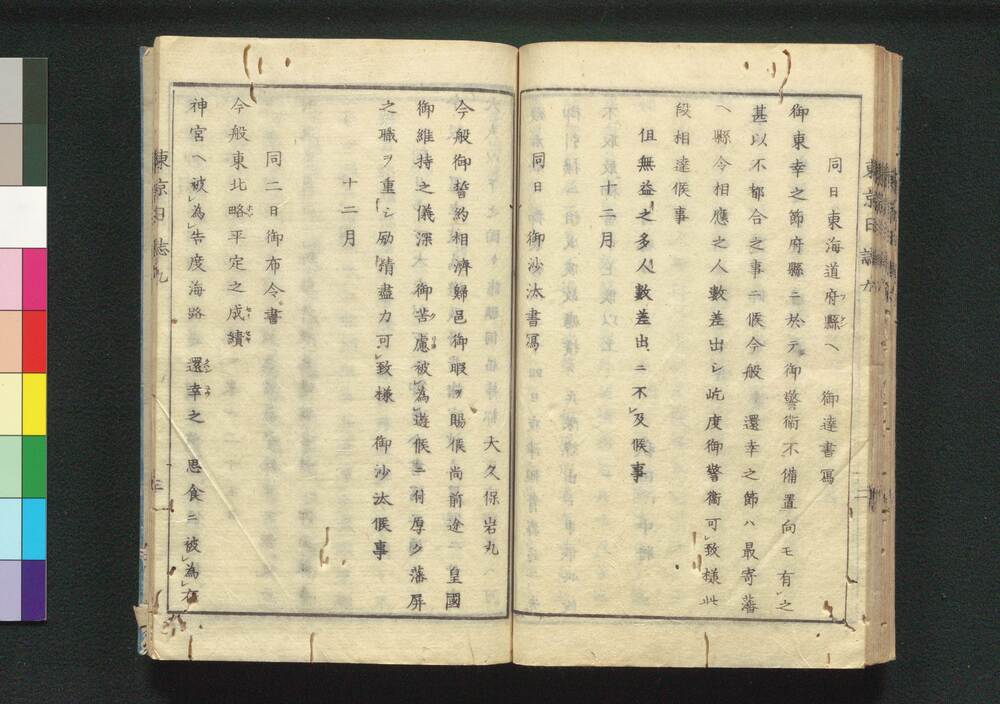 同日東海道府縣ヘ 御達書寫
御東幸之節府縣ニ於テ御警衞不備置向モ有之
甚以不都合之事ニ候今般 還幸之節ハ最寄藩
ヘ縣令相應之人數差出シ屹度御警衞可致樣此
段相達候事
但無益之多人數差出ニ不及候事
十二月
同日御沙汰書寫
大久保岩丸
今般御誓約相濟歸邑御暇ヲ賜候尚前途 皇國
御維持之儀深 御苦慮被為遊候ニ付厚ク藩屏
之職ヲ重シ勵精盡力可致樣 御沙汰候事
十二月
同二日御布令書
今般東北略平定之成績
神宮ヘ被為告度海路 還幸之 思食ニ被為在
東京日誌九